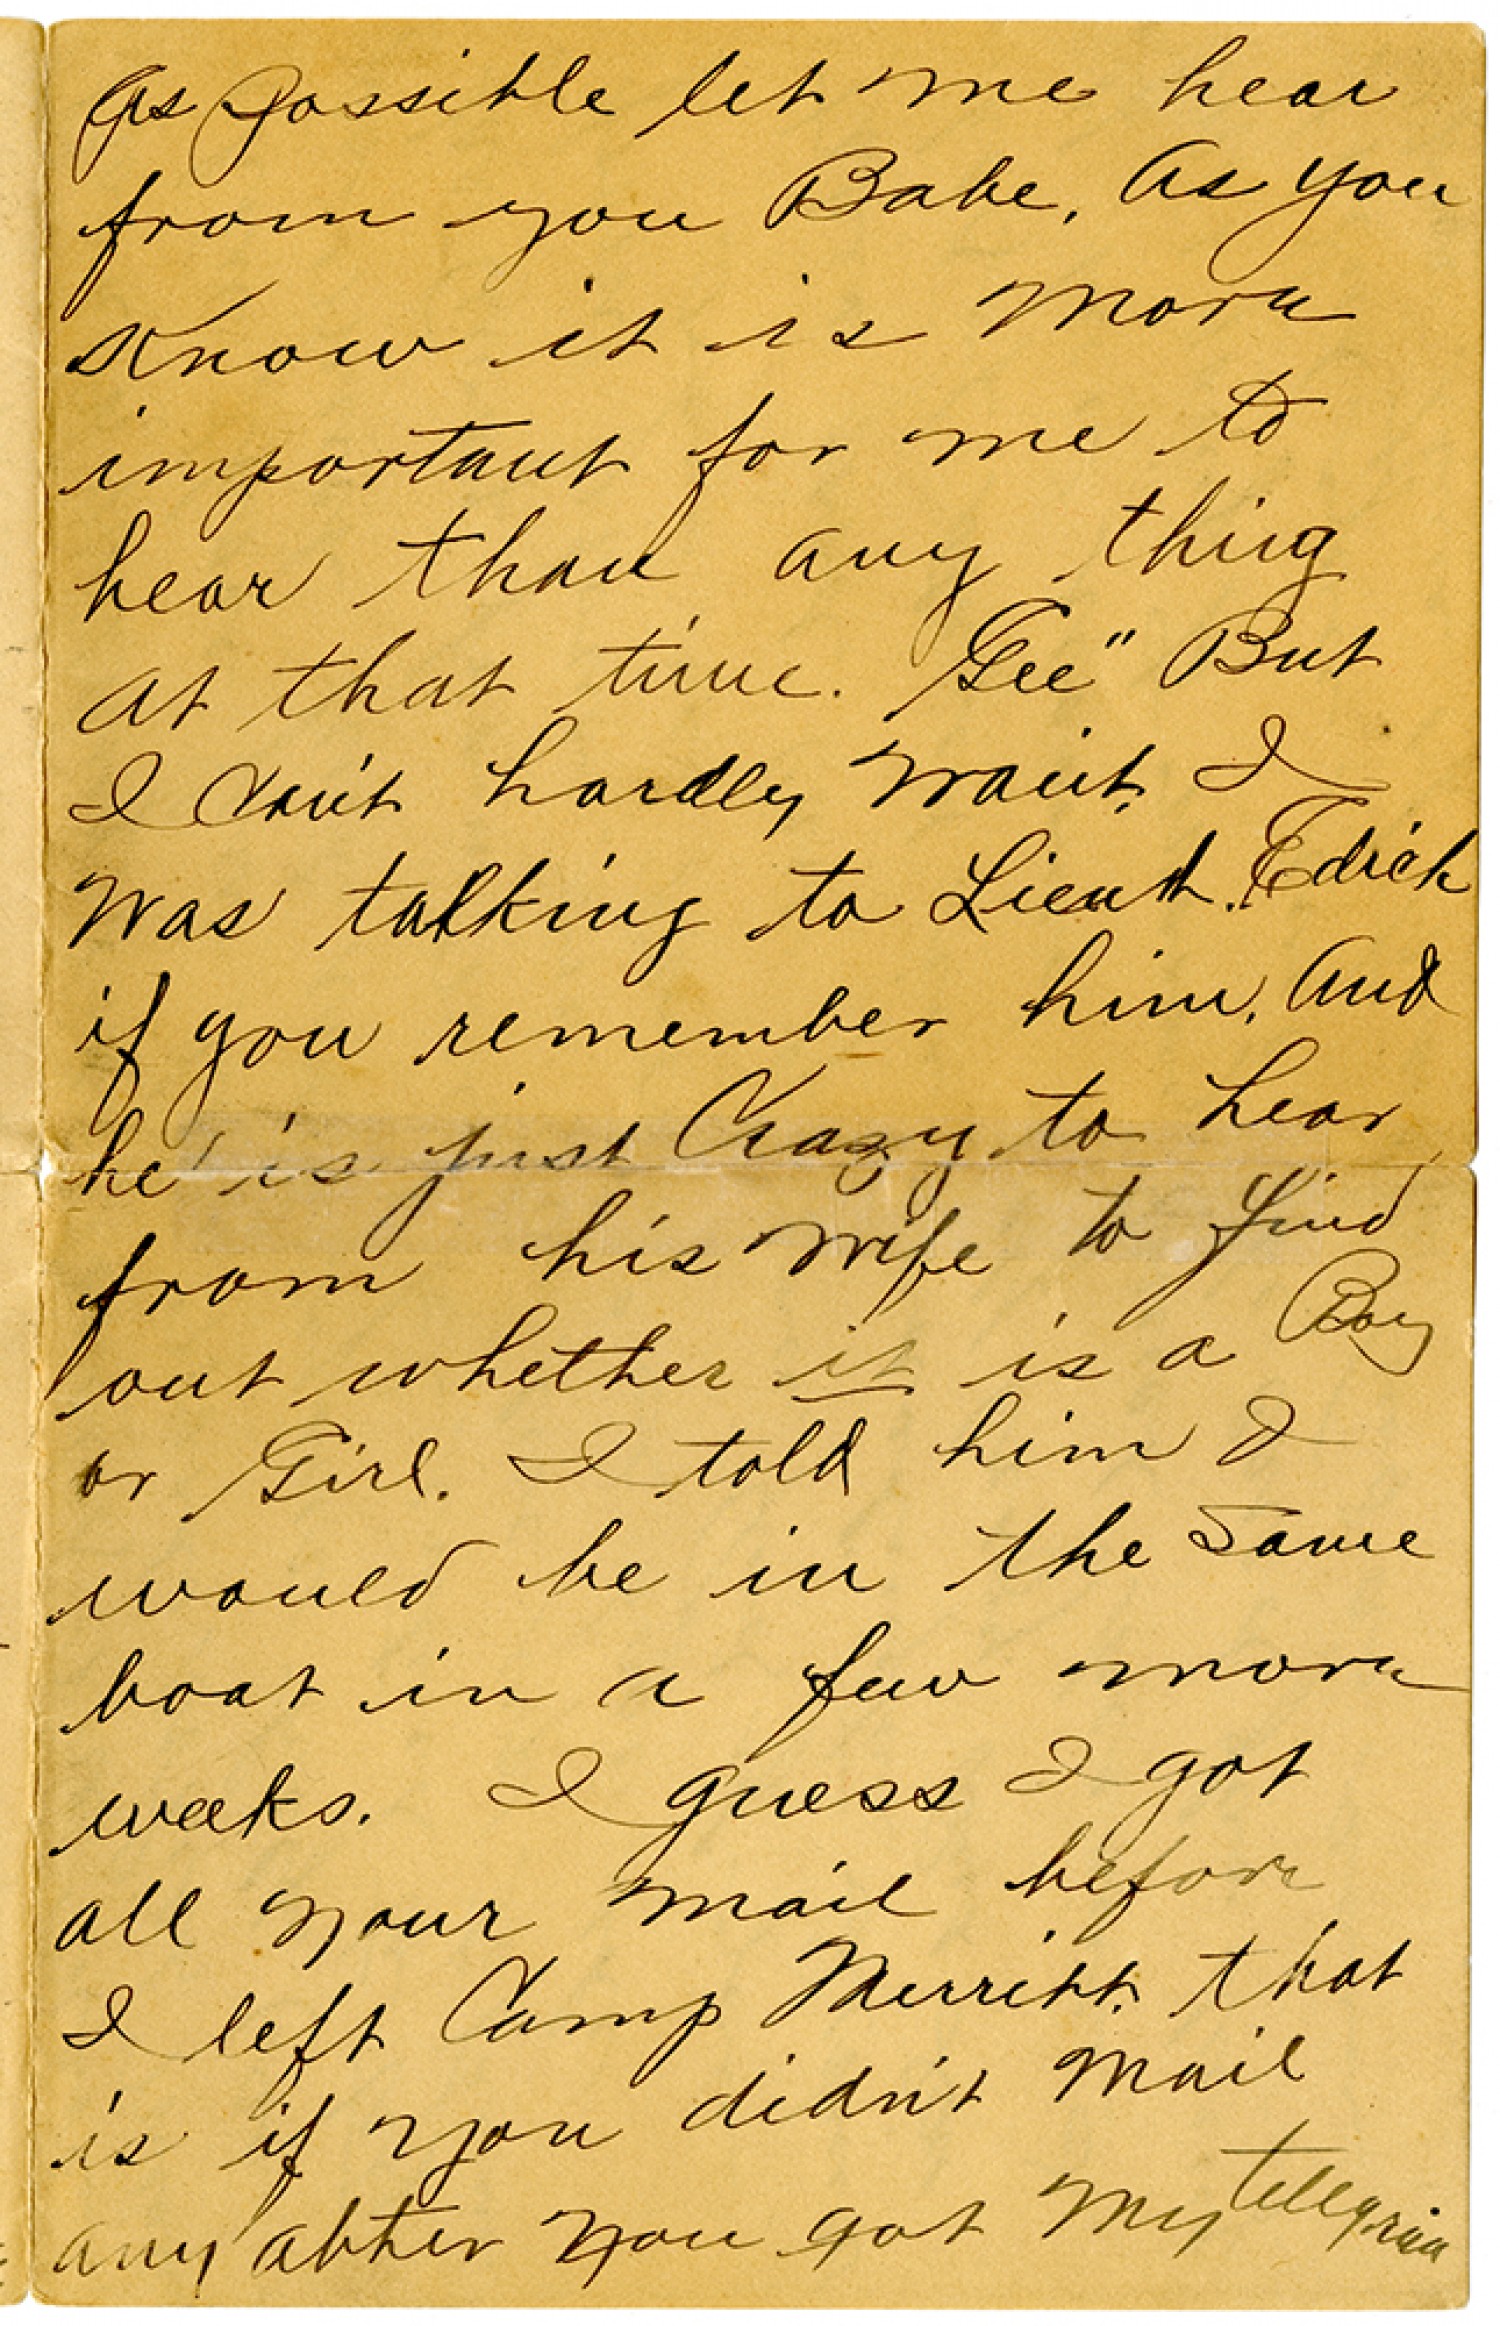 As Possible let me hear
from you Babe. As you
Know it is More
important for me to
hear than any thing
at that time. Gee" But
I Can't hardly wait. I
was talking to Lieut. Edick
if you remember him. And
he is just Crazy to hear
from his wife to find
out whether it is a Boy
or Girl. I told him I
would be in the same
boat in a few more
weeks. I guess I got
all your mail before
I left Camp Merritt. that
is if you didn't mail
any abter you got My telegram